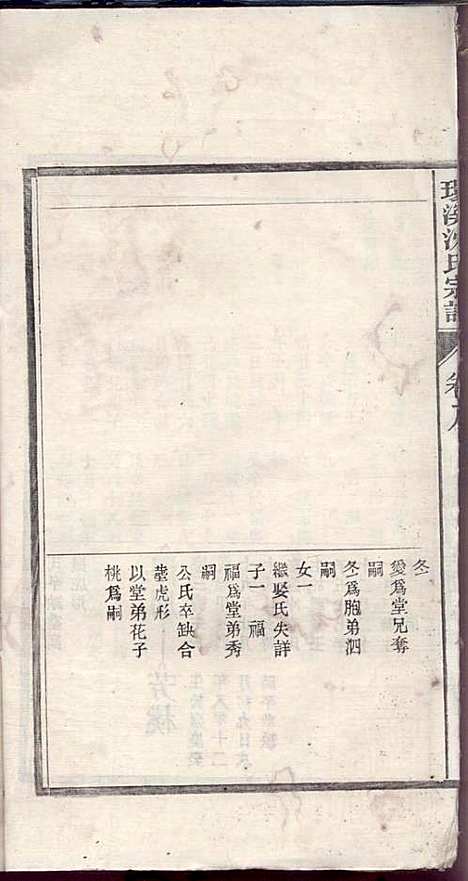 環溪沈氏宗譜
卷九
冬
愛爲堂兄奪
嗣
冬爲胞弟泗
嗣
女一
繼娶氏失詳
子一 福
福爲堂弟秀
嗣
公氏卒缺合
塟虎形
以堂弟花子
桃爲嗣